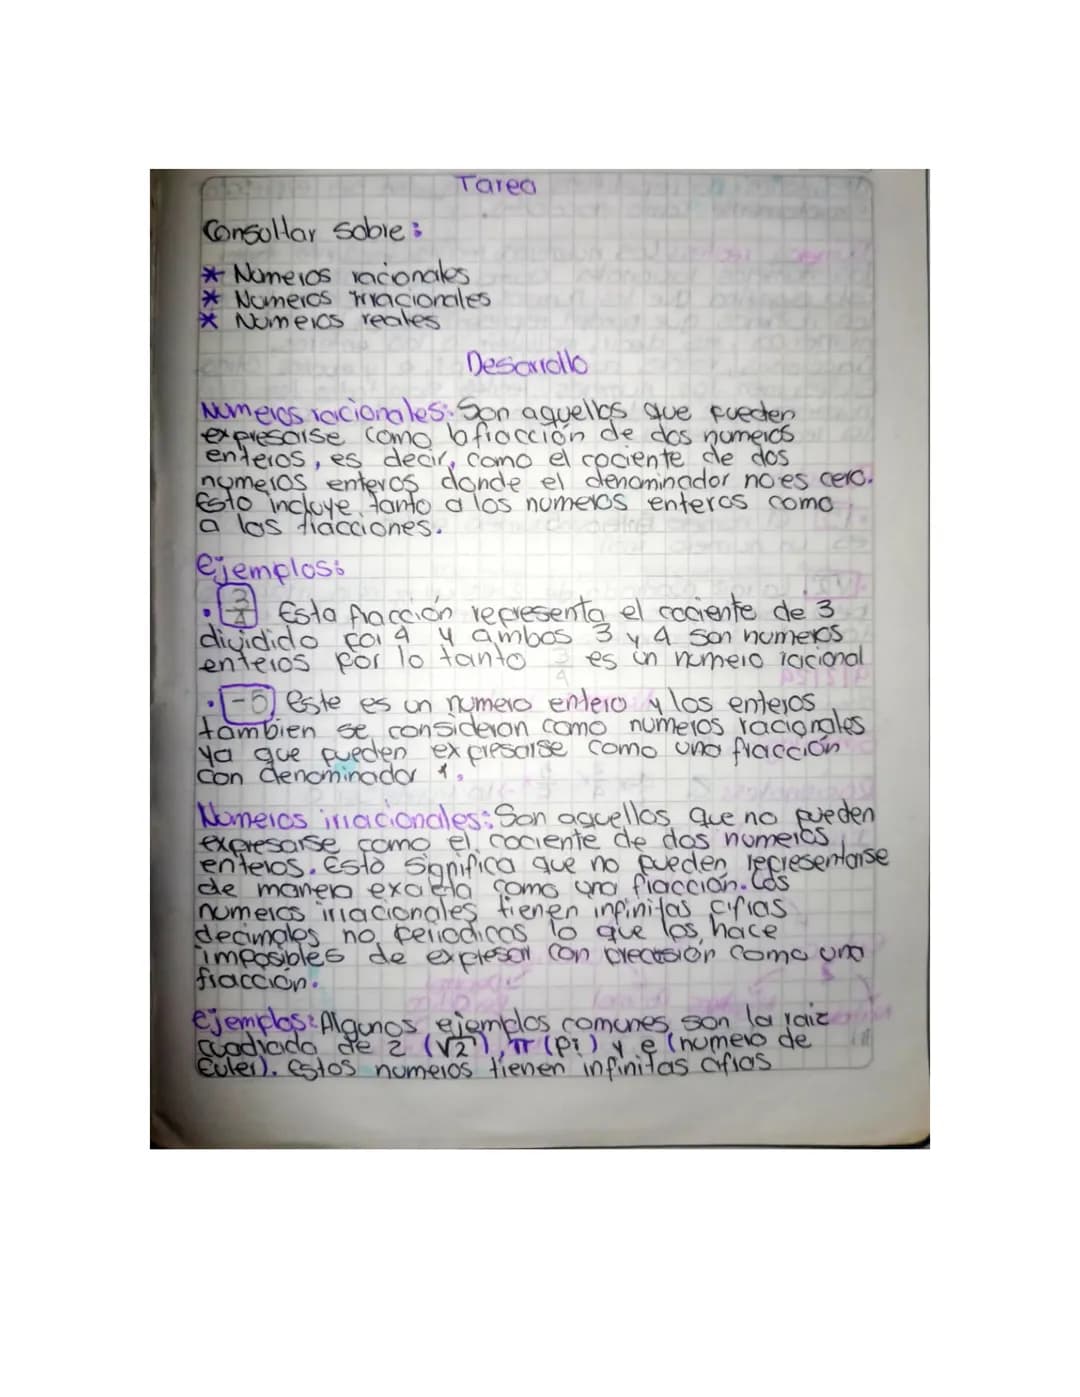 Tarea
Consultar sobre:
* Numeros racionales
* Numeros irracionales
* Numeros reales
Desarrollo
Numeros racionales: Son aquellos que pueden
expresarse como la fracción de dos numeros
enteros, es decir, como el cociente de dos
numeros enteros donde el denominador no es cero.
Esto incluye tanto a los numeros enteros como
a las fracciones.
Ejemplos:
• 3/4 Esta fracción representa el cociente de 3
dividido por 4 y ambos 3 y 4 son numeros
enteros por lo tanto 3/4 es un numero racional
• -5 Este es un numero entero y los enteros
tambien se consideran como numeros racionales
ya que pueden expresarse como una fracción
con denominador 1.
Numeros irracionales: Son aquellos que no pueden
expresarse como el cociente de dos numeros
enteros. Esto significa que no pueden representarse
de manera exacta como una fracción. Los
numeros irracionales tienen infinitas cifras
decimales no periodicas lo que los hace
imposibles de expresar con precisión como una
fracción.
Ejemplos: Algunos ejemplos comunes son la raiz
cuadrada de 2 (√2), π (pi) y e (numero de
Euler). Estos numeros tienen infinitas cifras